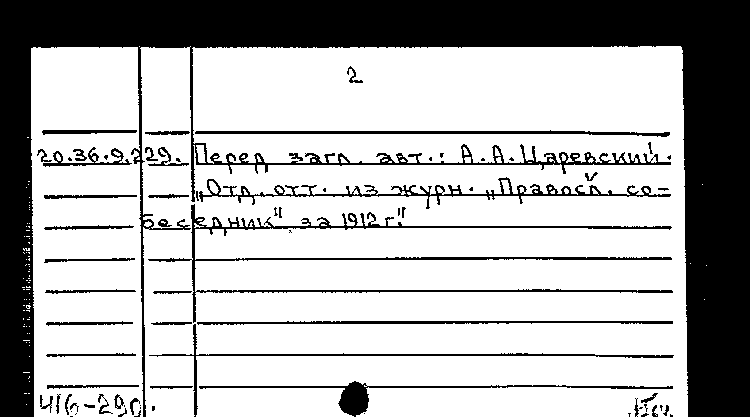 2
20.36.9.229. Перед загл. авт.: А.А.Царевский.
„Отд. отт. из журн. „Правосл. со-
беседник", за 1912 г."
416-290.